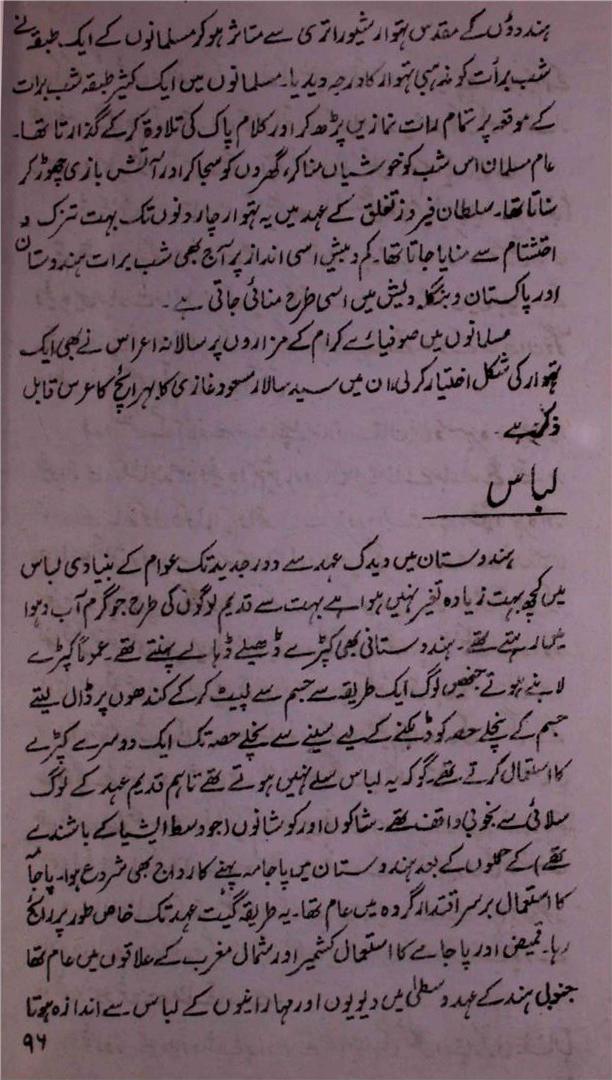 ہندوؤں کے مقدس تہوار شیوراتری سے متاثر ہوکر مسلمانوں کے ایک طبقہ نے
شب برأت کو مذہبی تہوار کا درجہ دیدیا۔ مسلمانوں میں ایک کثیر طبقہ شب برات
کے موقعہ پر تمام رات نمازیں پڑھ کر اور کلام پاک کی تلاوۃ کرکے گذارتا تھا۔
عام مسلمان اس شب کو خوشیاں مناکر، گھروں کو سجاکر اور آتش بازی چھوڑ کر
مناتا تھا۔ سلطان فیروز تغلق کے عہد میں یہ تہوار چار دنوں تک بہت تزک و
احتشام سے منایا جاتا تھا۔ کم و بیش اسی انداز پر آج بھی شب برات ہندوستان
اور پاکستان و بنگلہ دیش میں اسی طرح منائی جاتی ہے۔
مسلمانوں میں صوفیائے کرام کے مزاروں پر سالانہ اعراس نے بھی ایک
تہوار کی شکل اختیار کرلی، ان میں سید سالار مسعود غازی کا بہرائچ کا عرس قابل
ذکر ہے۔
لباس
ہندوستان میں ویدک عہد سے دور جدید تک عوام کے بنیادی لباس
میں کچھ بہت زیادہ تغیر نہیں ہوا ہے بہت سے قدیم لوگوں کی طرح جو گرم آب و ہوا
میں رہتے تھے۔ ہندوستانی بھی کپڑے ڈھیلے ڈہالے پہنتے تھے۔ عموماً کپڑے
لانبے ہوتے جنھیں لوگ ایک طریقہ سے جسم سے لپیٹ کر کے کندھوں پر ڈال لیتے
جسم کے نچلے حصہ کو ڈہکنے کے لیے سینے سے نچلے حصہ تک ایک دوسرے کپڑے
کا استعمال کرتے تھے۔ گو کہ یہ لباس سلے نہیں ہوتے تھے تاہم قدیم عہد کے لوگ
سلائی سے بخوبی واقف تھے۔ شاکوں اور کوشانوں (جو وسط ایشیا کے باشندے
تھے) کے حملوں کے بعد ہندوستان میں پاجامہ پہنے کا رواج بھی شروع ہوا۔ پاجامہ
کا استعمال برسر اقتدار گروہ میں عام تھا۔ یہ طریقہ گپت عہد تک خاص طور پر رائج
رہا۔ قمیض اور پاجامے کا استعمال کشمیر اور شمال مغرب کے علاقوں میں عام تھا
جنوبی ہند کے عہد وسطیٰ میں دیویوں اور مہارانیوں کے لباس سے اندازہ ہوتا
۹۶